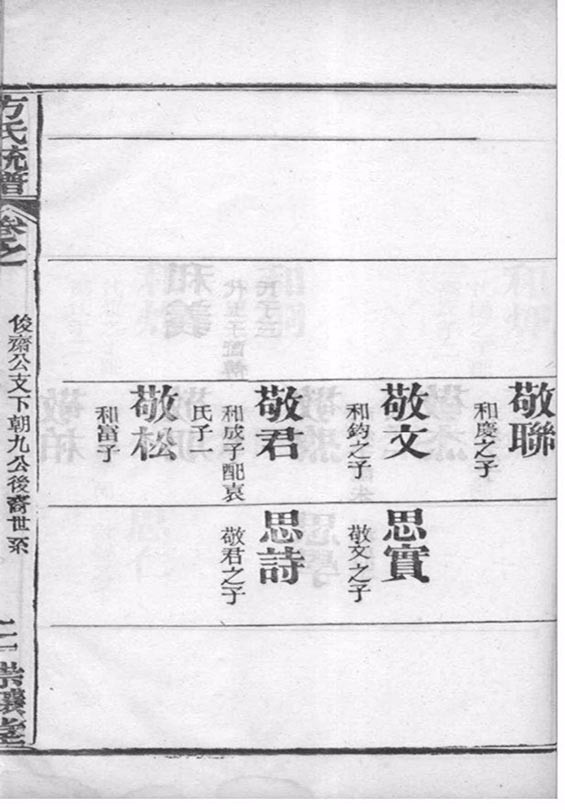 敬聯
和慶之子
敬文
和鈞之子
敬君
和成子配袁
氏子一
敬松
和富子
思實
敬文之子
思詩
敬君之子
方氏統譜
卷之
俊齋公支下朝九公後裔世系
二
崇讓堂